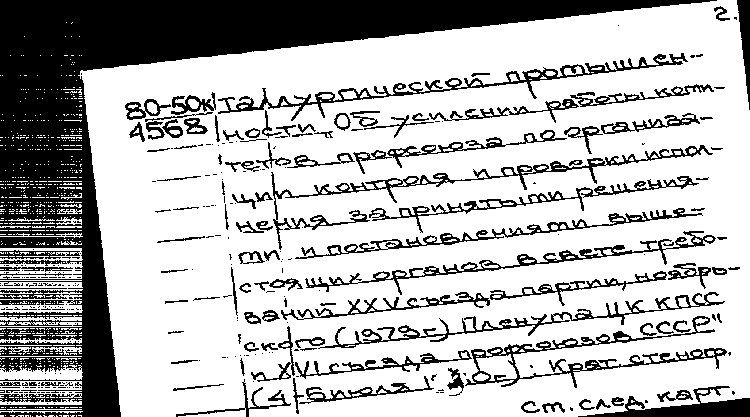 2.
80-50к таллургической промышлен-
4568 ности „Об усилении работы коми-
тетов профсоюза по организа-
ции контроля и проверки испол-
нения за принятыми решения-
ми и постановлениями выше-
стоящих органов в свете требо-
ваний XXV съезда партии, ноябрь-
ского (1979г.) Пленума ЦК КПСС
и XVI съезда профсоюзов СССР"
(4-5 июля г.): Крат. стеногр.
См. след. карт.